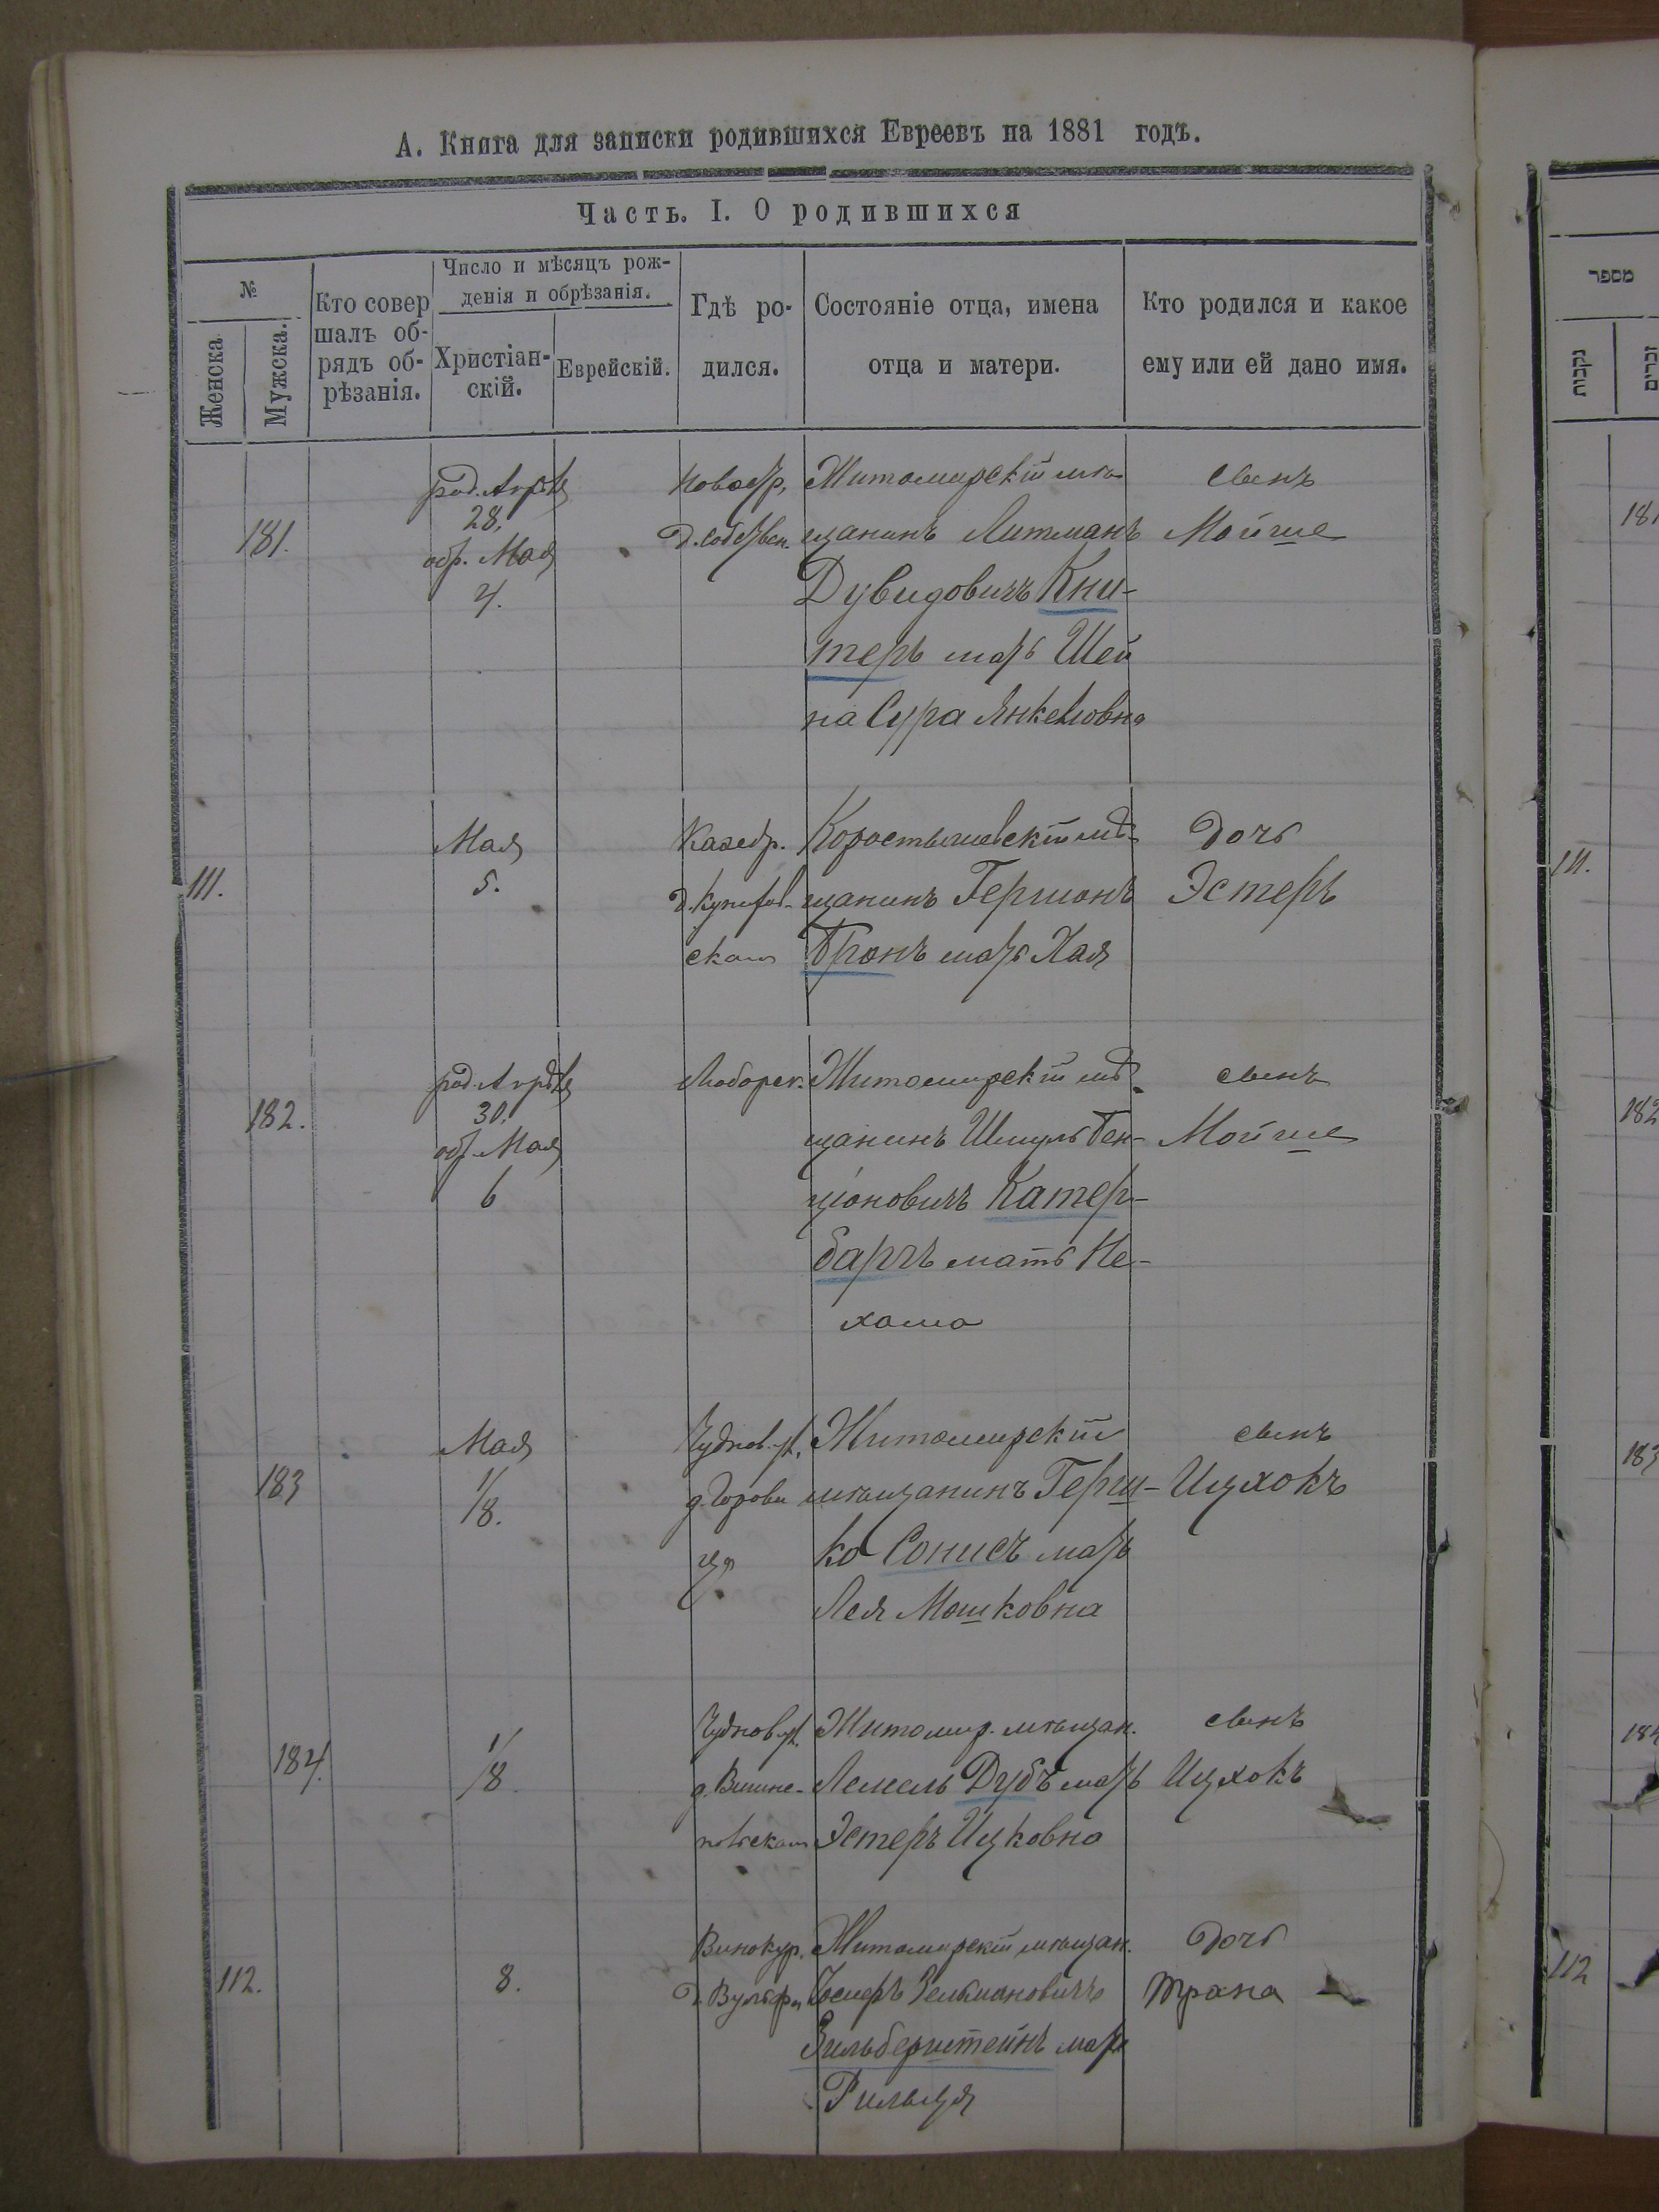 А. Книга для записки родившихся Евреевъ на 1881 годъ.
Часть. I. О родившихся
№
Женска
Мужска.
Кто совер
шалъ об-
рядъ об-
рѣзанія.
Число и мѣсяцъ рож-
денія и обрѣзанія.
Христіан-
скій.
Еврейскій.
Гдѣ ро-
дился.
Состояніе отца, имена
отца и матери.
Кто родился и какое
ему или ей дано имя.
181.
род. Апрѣля
28,
обр. Мая
4.
д. собствен.
Житомирскій мѣ-
щанинъ Литманъ
Дувидовичъ Кни-
теръ мать Шей
на Сура Янкелловна
сынъ
Мойше
111.
Мая
5.
Каѳедр.
Коростышевскій мѣ-
щанинъ Гершонъ
Бронъ мать Хая
Дочь
Эстеръ
182.
род. Апрѣля
30,
обр. Мая
6
Житомирскій мѣ-
щанинъ Шмуль Бен-
ціоновичъ Катер-
баргъ мать Не-
хама
сынъ
Мойше
183
Мая
1/
/8.
Чуднов. ул.
Житомирскій
мѣщанинъ Герш-
ко Сонисъ мать
Лея Мошковна
сынъ
Ицхокъ
184.
1/
/8.
Чуднов ул.
Житомир. мѣщан.
Лемель Дубъ мать
Эстеръ Ицковна
сынъ
Ицхокъ
112.
8.
Винокур.
Житомирскій мѣщан.
Зильберштейнъ мать
Дочь
Трана
מספר
נקבות
זכרים
181
111.
182
183
184
112